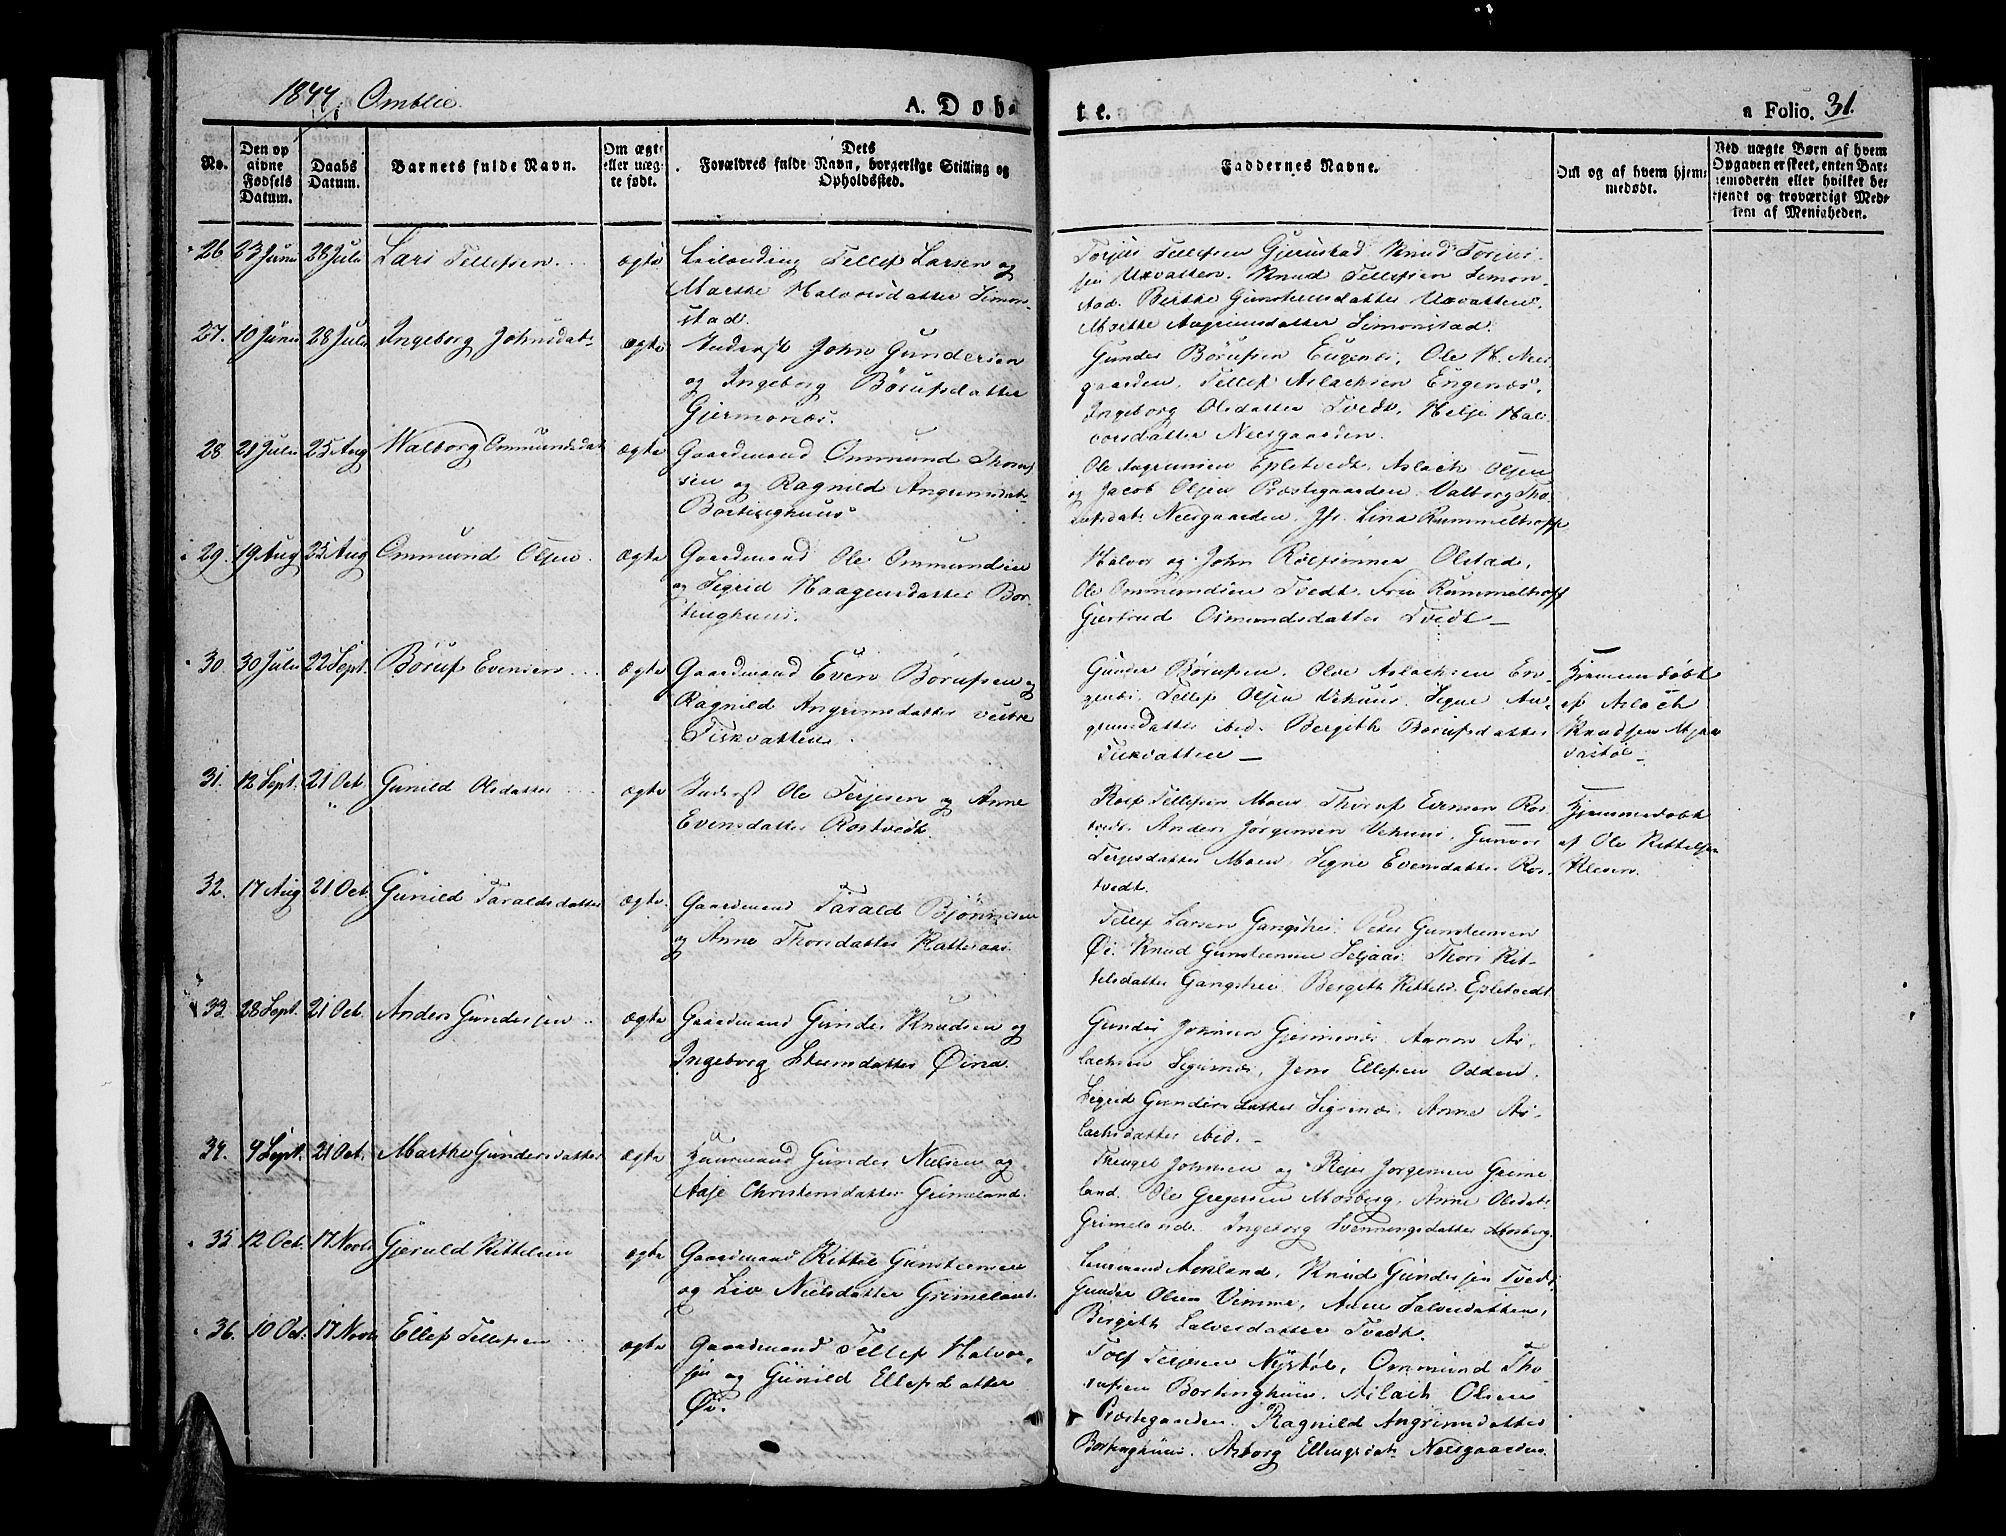 1844 Omblie.
A. Døb
te.
a Folio. 31.
No.
Den op
givne
Fødsels
Datum.
Daabs
Datum.
Barnets fulde Navn.
Om ægte
eller uæg-
te født.
Dets
Forældres fulde Navn, borgerlige Stilling og
Opholdssted.
Faddernes Navne.
Om og af hvem hjem-
medøbt.
Ved uægte Børn af hvem
Opgaven er skeet, enten Bar-
nemoderen eller hvilket be-
kjendt og troværdigt Med-
lem af Menigheden.
26. 23 Juni 28 Juli Lars Tellefsen ægte Leilænding Tellef Larsen og
Marthe Halvorsdatter Simon-
stad.
Torjus Tellefsen Gjerustad Knud Torjus-
sen Uxvatten. Knud Tellefsen Simon-
stad. Berthe Gunsteensdatter Uxvatten,
Marthe Angrimsdatter Simonstad.
27. 10 Juni 28 Juli Ingeborg Johnsdat- ægte Inderst John Gundersen
og Ingeborg Børufsdatter
Gjermonæs.
Gunder Børufsen Engenæs, Ole H. Nees-
gaarden, Tellef Aslachsen Engenæs,
Ingeborg Olsdatter Tvedt, Helje Hal-
vorsdatter Neesgaarden.
28. 21 Juli 25 Aug Walborg Ommundsdat ægte Gaardmand Ommund Thom-
sen og Ragnild Angrimsdat-
Bortinghuus
Ole Angrimsen Epletvedt, Aslach Olsen
og Jacob Olsen Præstegaarden. Valborg Tho-
Neesgaarden. Jfr. Lina Rummelhoff
29. 19 Aug 25 Aug Ommund Olsen. ægte Gaardmand Ole Ommundsen
og Sigrid Haagensdatter Bor-
tinghuus.
Halvor og John Olstad,
Ole Ommundsen Tvedt. Fru Rummelhoff
Gjertrud Osmundsdatter Tvedt —
30. 30 Juli 22 Sept. Børuf Evensen ægte Gaardmand Even Børufsen og
Ragnild Angrimsdatter vestre
Tiskvatten.
Gunder Børufsen. Olve Aslachsen En-
genæs. Tellef Olsen Vehuus. Signe An-
grimsdatter ibid. Bergith Børufsdatter
Tiskvatten —
Hjemmedøbt
af Aslach
Knudsen Mjaa-
vastøl —
31. 12 Sept. 21 Oct. Gunild Olsdatter ægte Inderst Ole Terjesen og Anne
Evensdatter Rostvedt
Rolf Tellefsen Moen Thoruf Evensen Ros-
tvedt. Anders Jørgensen Vehuus, Gunvor
Terjesdatter Moen, Signe Evensdatter Ros-
tvedt.
Hjemmedøbt
af Ole Kittelsen
Kleven.
32. 17 Aug 21 Oct. Gunild Taraldsdatter ægte. Gaardmand Tarald Bjønnesen
og Anne Thorsdatter Katteraas.
Tellef Larsen Gangshei. Peder Gunsteensen
Øi. Knud Gunsteensen Seljaas. Thore Kit-
telsdatter Gangshei. Bergith Kittelsd. Epletvedt
33. 28 Sept. 21 Oct. Anders Gundersen ægte Gaardmand Gunder Knudsen og
Ingeborg Steensdatter Øina.
Gunder Johnsen Gjermonæs. Annon As-
lachsen Sigernæs, Jens Ellefsen Odden.
Sigrid Gundersdatter Sigernæs. Anne As-
lachsdatter ibid. —
34. 4 Sept. 21 Oct. Marthe Gundersdatter ægte Huusmand Gunder Nielsen og
Aasje Christensdatter Grimeland.
Thengel Johnsen og Reier Jørgensen Grime-
land. Ole Gregersen Mosberg, Anne Olsdat-
Grimeland. Ingeborg Svenningsdatter Mosberg.
35. 12 Oct. 17 Novbr Gjeruld Kittelsen ægte Gaardmand Kittel Gunsteensen
og Liv Nielsdatter Grimeland.
Aasland, Knud Gundersen Tvedt,
Gunder Olsen Vimme, Anne Salvesdatter,
Bergith Salvesdatter Tvedt.
36. 10 Oct. 17 Novbr Ellef Tellefsen ægte Gaardmand Tellef Halvor-
sen og Gunild Ellefsdatter
Øi.
Tolf Terjesen Nystøl, Ommund Tho-
Bortinghuus. Aslach Olsen
Præstegaarden. Ragnild Angrimsdatter
Bortinghuus. Asborg Ellingsdat- Neesgaarden.